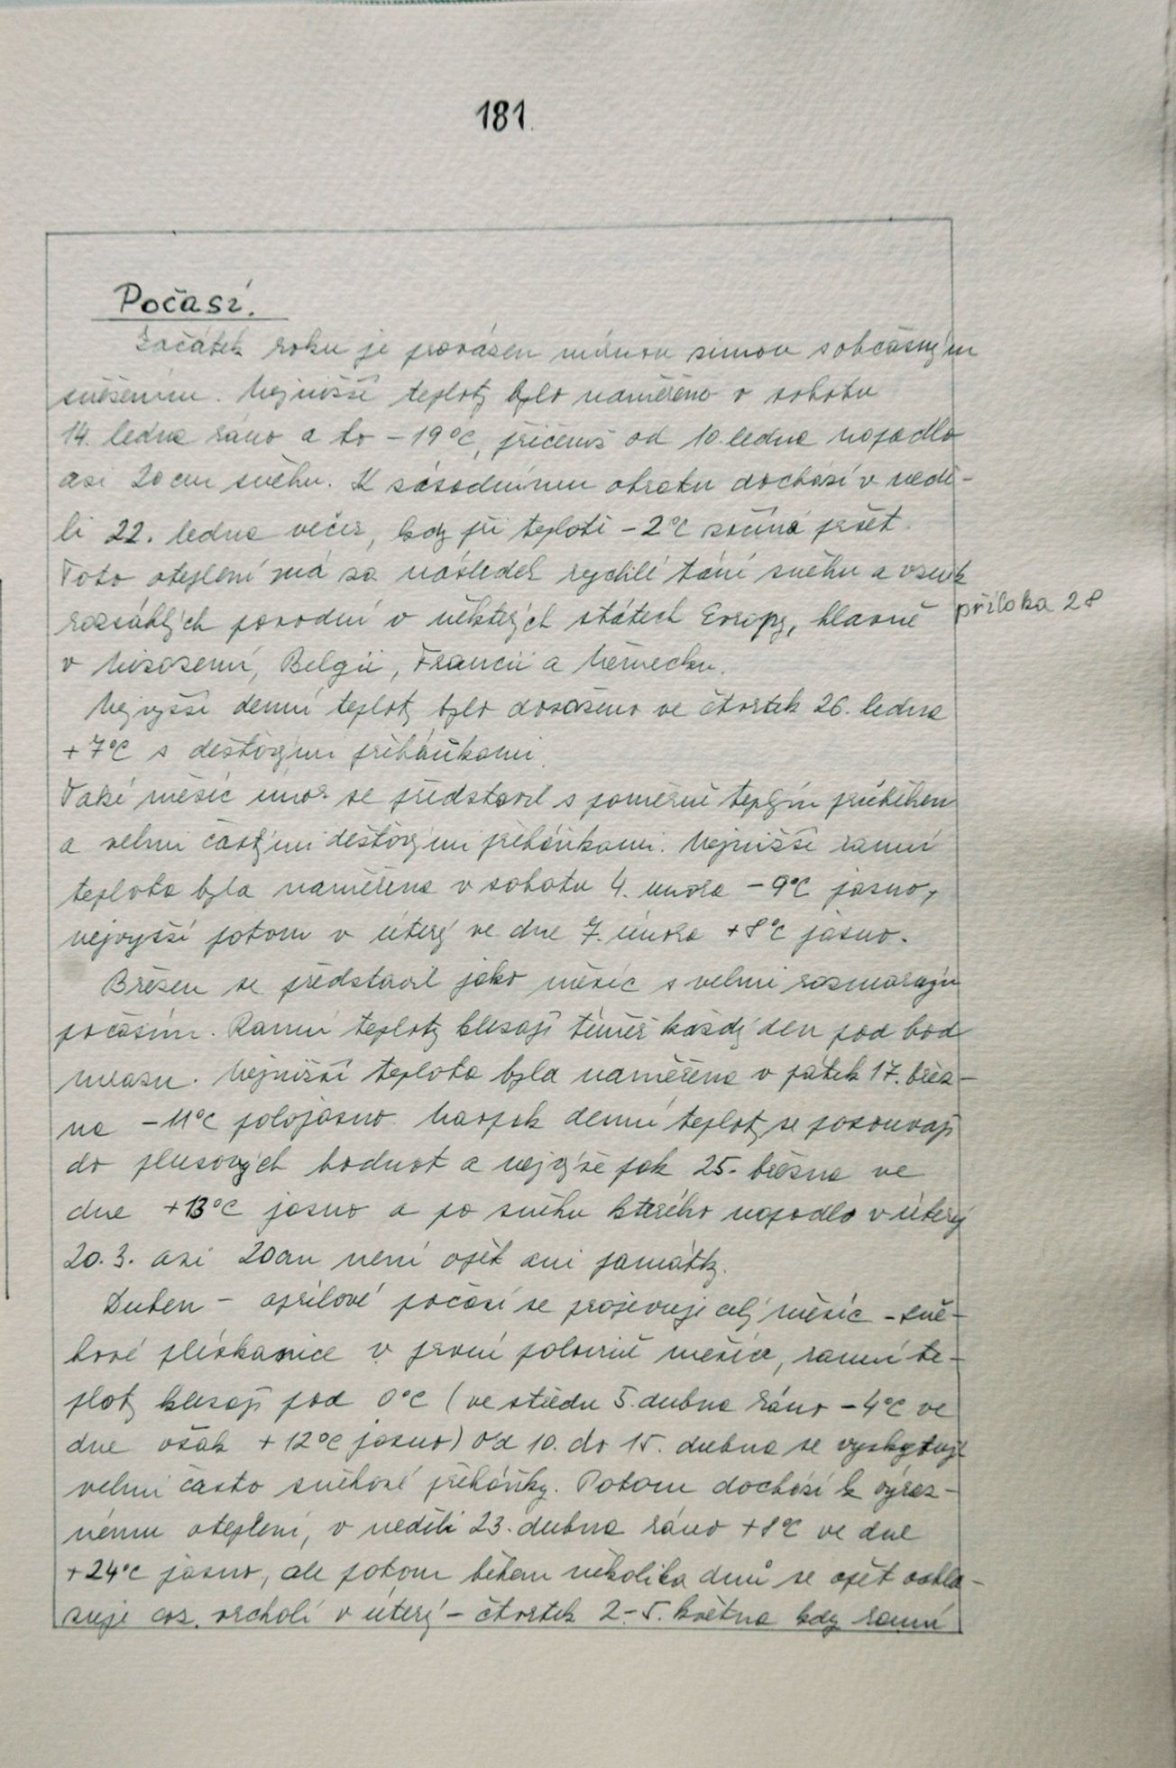 181.
Počasí.
Začátek roku je provázen mírnou zimou s občasným
sněžením. Nejnižší teploty bylo naměřeno v sobotu
14. ledna ráno a to -19°C, přičemž od 10. ledna napadlo
asi 20 cm sněhu. K zásadnímu obratu dochází v nedě-
li 22. ledna večer, kdy při teplotě -2°C začíná pršet.
Toto oteplení má za následek rychlé tání sněhu a vznik
rozsáhlých povodní v některých státech Evropy, hlavně
příloha 28
v Nizozemí, Belgii, Francii a Německu.
Nejvyšší denní teploty bylo dosaženo ve čtvrtek 26. ledna
+7°C s dešťovými přeháňkami.
Také měsíc únor se představil s poměrně teplým průběhem
a velmi častými dešťovými přeháňkami. Nejnižší ranní
teplota byla naměřena v sobotu 4. února -9°C jasno,
nejvyšší potom v úterý ve dne 7. února +8°C jasno.
Březen se představil jako měsíc s velmi rozmarným
počasím. Ranní teploty klesají téměř každý den pod bod
mrazu. Nejnižší teplota byla naměřena v pátek 17. břez-
na -11°C polojasno. Naopak denní teploty se posouvají
do plusových hodnot a nejvýše pak 25. března ve
dne +13°C jasno a po sněhu kterého napadlo v úterý
20.3. asi 20cm není opět ani památky.
Duben - aprílové počasí se projevuje celý měsíc - sně-
hové plískanice v první polovině měsíce, ranní te-
ploty klesají pod 0°C (ve středu 5. dubna ráno -4°C ve
dne však +12°C jasno) Od 10. do 15. dubna se vyskytují
velmi často sněhové přeháňky. Potom dochází k výraz-
nému oteplení, v neděli 23. dubna ráno +8°C ve dne
+24°C jasno, ale potom během několika dnů se opět ochla-
zuje což vrcholí v úterý - čtvrtek 2.-5. května kdy ranní